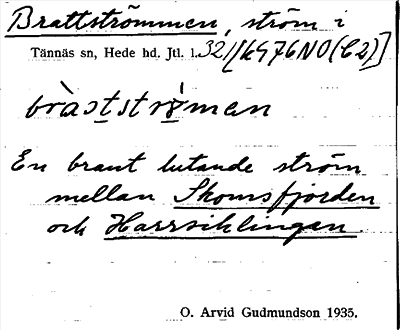 Brattströmmen, ström i
Tännäs sn, Hede hd. Jtl. l. 321/[K976NO(C2)]
bràstströ̀men
En brant lutande ström
mellan Skomsfjorden
och Harrsiklingan.
O. Arvid Gudmundson 1935.